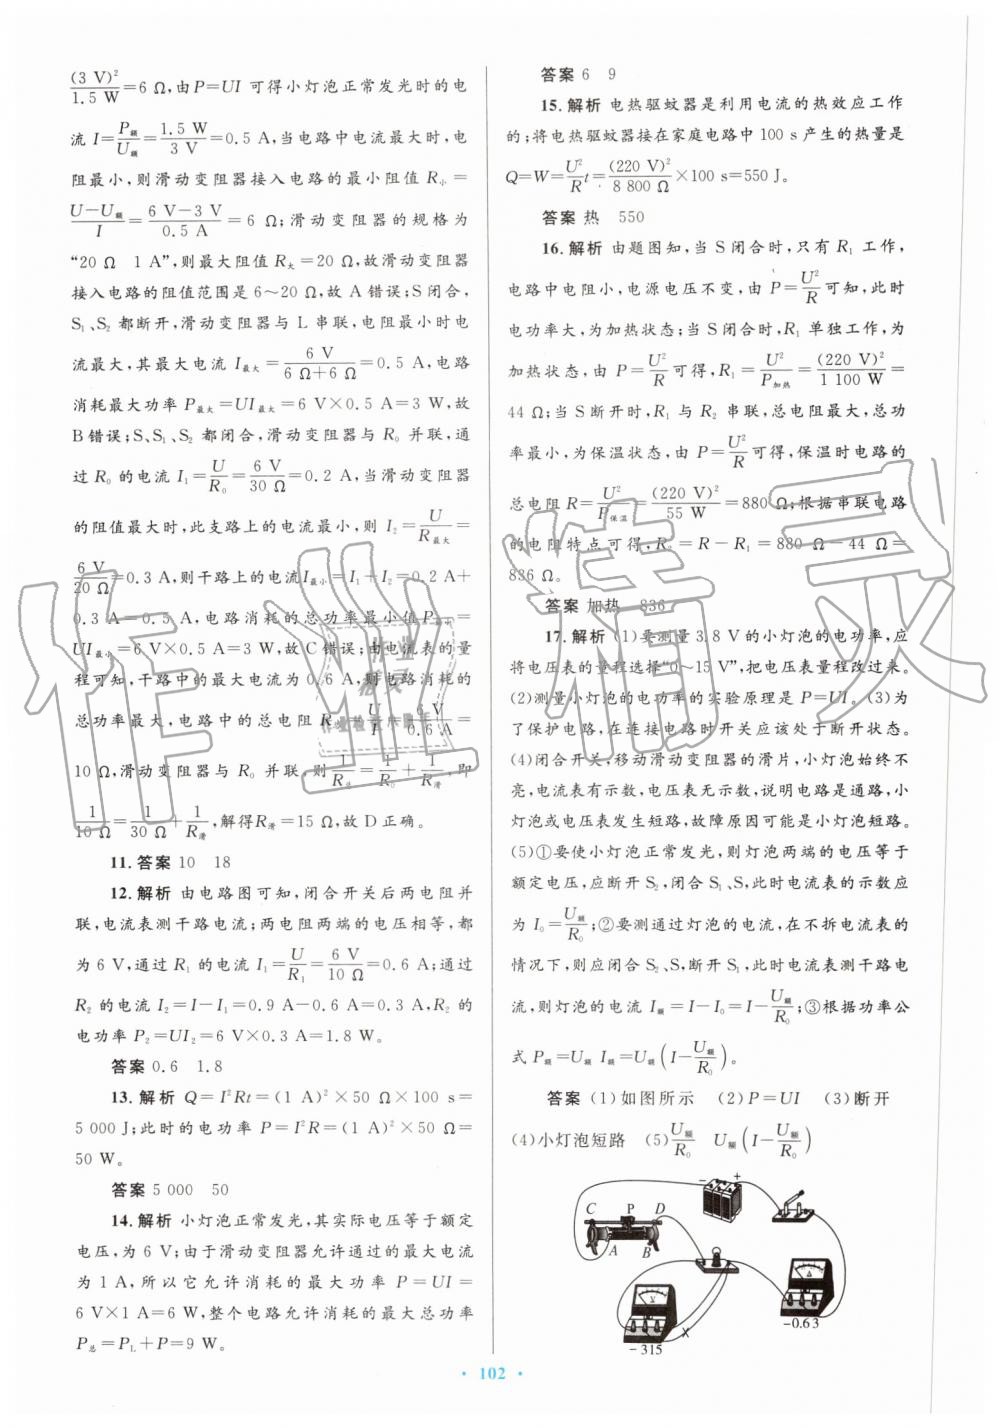 (3 V)²/1.5 W=6 Ω,由P=UI 可得小灯泡正常发光时的电
流 I=P额/U额=1.5 W/3 V=0.5 A,当电路中电流最大时,电
阻最小,则滑动变阻器接入电路的最小阻值 R小=
(U-U额)/I=(6 V-3 V)/0.5 A=6 Ω;滑动变阻器的规格为
“20 Ω 1 A”,则最大阻值 R大=20 Ω,故滑动变阻器
接入电路的阻值范围是 6~20 Ω,故 A 错误;S闭合,
S₁、S₂ 都断开,滑动变阻器与 L 串联,电阻最小时电
流最大,其最大电流 I最大=6 V/(6 Ω+6 Ω)=0.5 A,电路
消耗最大功率 P最大=UI最大=6 V×0.5 A=3 W,故
B错误;S、S₁、S₂ 都闭合,滑动变阻器与 R₀ 并联,通
过 R₀ 的电流 I₁=U/R₀=6 V/30 Ω=0.2 A,当滑动变阻器
的阻值最大时,此支路上的电流最小,则 I₂=U/R最大=
6 V/20 Ω=0.3 A,则干路上的电流I最小=I₁+I₂=0.2 A+
0.3 A=0.5 A,电路消耗的总功率最小值 P最小=
UI最小=6 V×0.5 A=3 W,故 C 错误;由电流表的量
程可知,干路中的最大电流为 0.6 A,则电路消耗的
总功率最大,电路中的总电阻 R=U/I=6 V/0.6 A=
10 Ω,滑动变阻器与 R₀ 并联,则1/R总=1/R₀+1/R滑,即
1/10 Ω=1/30 Ω+1/R滑,解得R滑=15 Ω,故 D 正确。
11.答案 10 18
12.解析 由电路图可知,闭合开关后两电阻并
联,电流表测干路电流;两电阻两端的电压相等,都
为 6 V,通过 R₁ 的电流 I₁=U/R₁=6 V/10 Ω=0.6 A;通过
R₂ 的电流 I₂=I-I₁=0.9 A-0.6 A=0.3 A,R₂ 的
电功率 P₂=UI₂=6 V×0.3 A=1.8 W。
答案 0.6 1.8
13.解析 Q=I²Rt=(1 A)²×50 Ω×100 s=
5 000 J;此时的电功率 P=I²R=(1 A)²×50 Ω=
50 W。
答案 5 000 50
14.解析 小灯泡正常发光,其实际电压等于额定
电压,为 6 V;由于滑动变阻器允许通过的最大电流
为 1 A,所以它允许消耗的最大功率 P=UI=
6 V×1 A=6 W,整个电路允许消耗的最大总功率
P总=P_L+P=9 W。
答案 6 9
15.解析 电热驱蚊器是利用电流的热效应工作
的;将电热驱蚊器接在家庭电路中 100 s 产生的热量是
Q=W=U²/R t=(220 V)²/8 800 Ω×100 s=550 J。
答案 热 550
16.解析 由题图知,当 S 闭合时,只有 R₁ 工作,
电路中电阻小,电源电压不变,由 P=U²/R可知,此时
电功率大,为加热状态;当 S闭合时,R₁ 单独工作,为
加热状态,由 P=U²/R可得,R₁=U²/P加热=(220 V)²/1 100 W=
44 Ω;当 S 断开时,R₁ 与 R₂ 串联,总电阻最大,总功
率最小,为保温状态,由 P=U²/R可得,保温时电路的
总电阻 R=U²/P保温=(220 V)²/55 W=880Ω;根据串联电路
的电阻特点可得,R₂=R-R₁=880 Ω-44 Ω=
836 Ω。
答案 加热 836
17.解析 (1)要测量 3.8 V 的小灯泡的电功率,应
将电压表的量程选择“0~15 V”,把电压表量程改过来。
(2)测量小灯泡的电功率的实验原理是 P=UI。(3)为
了保护电路,在连接电路时开关应该处于断开状态。
(4)闭合开关,移动滑动变阻器的滑片,小灯泡始终不
亮,电流表有示数,电压表无示数,说明电路是通路,小
灯泡或电压表发生短路,故障原因可能是小灯泡短路。
(5)①要使小灯泡正常发光,则灯泡两端的电压等于
额定电压,应断开 S₂,闭合 S₁、S,此时电流表的示数应
为 I₀=U额/R₀;②要测通过灯泡的电流,在不拆电流表的
情况下,则应闭合 S₂、S,断开 S₁,此时电流表测干路电
流,则灯泡的电流 I额=I-I₀=I-U额/R₀;③根据功率公
式 P额=U额 I额=U额(I-U额/R₀)。
答案 (1)如图所示 (2)P=UI (3)断开
(4)小灯泡短路 (5)U额/R₀ U额(I-U额/R₀)
- +
C P D
A B
V
A
X
-0.6 3
-3 15
· 102 ·
作业精灵